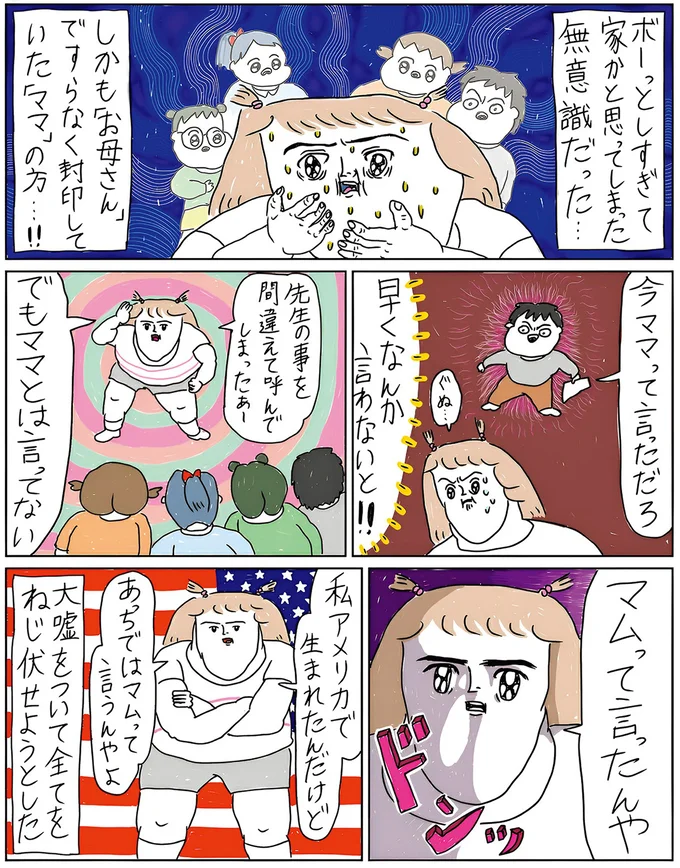 ボーっとしすぎて
家かと思ってしまった
無意識だった…
しかも「お母さん」
ですらなく封印して
いた「ママ」の方…!!
今ママって言っただろ
ぐぬ…
早くなんか
言わないと!!
先生の事を
間違えて呼んで
しまったぁー
でもママとは言ってない
マムって言ったんや
ドンッ
私アメリカで
生まれたんだけど
あちではマムって
言うんやよ
大嘘をついて全てを
ねじ伏せようとした